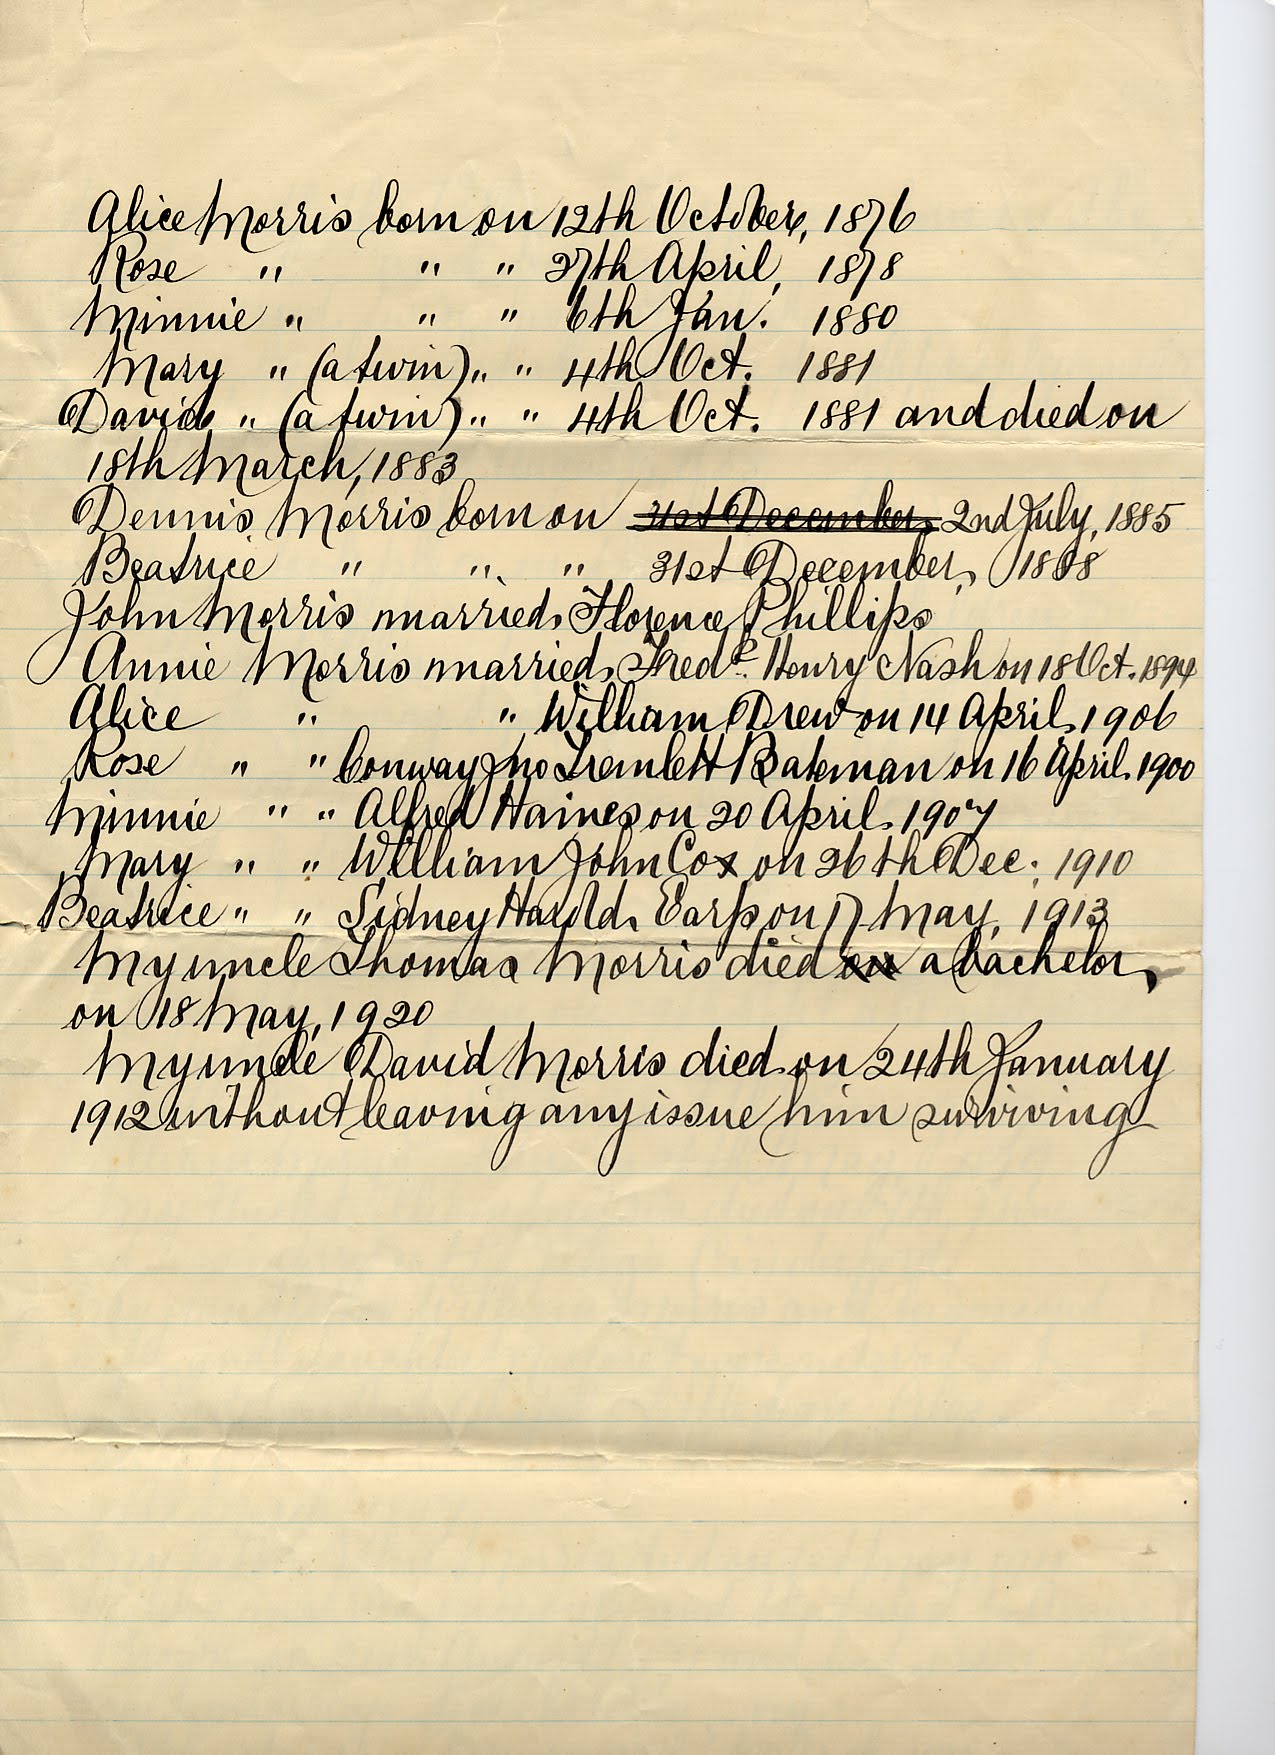 Alice Morris born on 12th October, 1876
Rose " " " 27th April, 1878
Minnie " " " 6th Jan. 1880
Mary " (a twin) " " 4th Oct. 1881
David " (a twin) " " 4th Oct. 1881 and died on
18th March, 1883
Dennis Morris born on 31st December, 2nd July, 1885
Beatrice " " " 31st December, 1888
John Morris married Florence Phillips
Annie Morris married Fredk. Henry Nash on 18 Oct. 1894
Alice " " William Drew on 14 April 1906
Rose " " Conway Jno Tremlett Bateman on 16 April 1900
Minnie " " Alfred Haines on 20 April 1907
Mary " " William John Cox on 26th Dec: 1910
Beatrice " " Sidney Harold Earp on 17 May, 1913
My uncle Thomas Morris died on a bachelor,
on 18 May, 1920
My uncle David Morris died on 24th January
1912 without leaving any issue him surviving